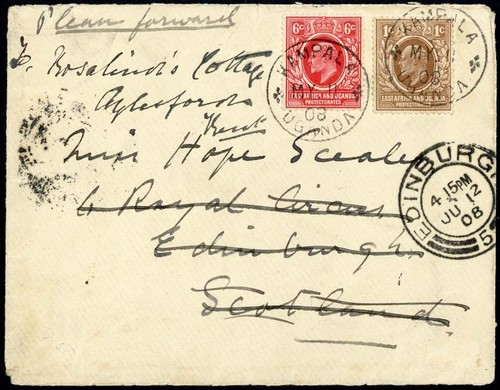 Please forward
6c 6c
1c 1c
EAST AFRICA AND UGANDA
PROTECTORATES
EAST AFRICA AND UGANDA
PROTECTORATES
KAMPALA
MY
08
UGANDA
KAMPALA
MY
08
UGANDA
Rosalind's Cottage
Aylesford
Kent
Miss Hope Scealy
6 Royal Circus
Edinburgh
Scotland
EDINBURGH
4 15PM
JU 12
08
5